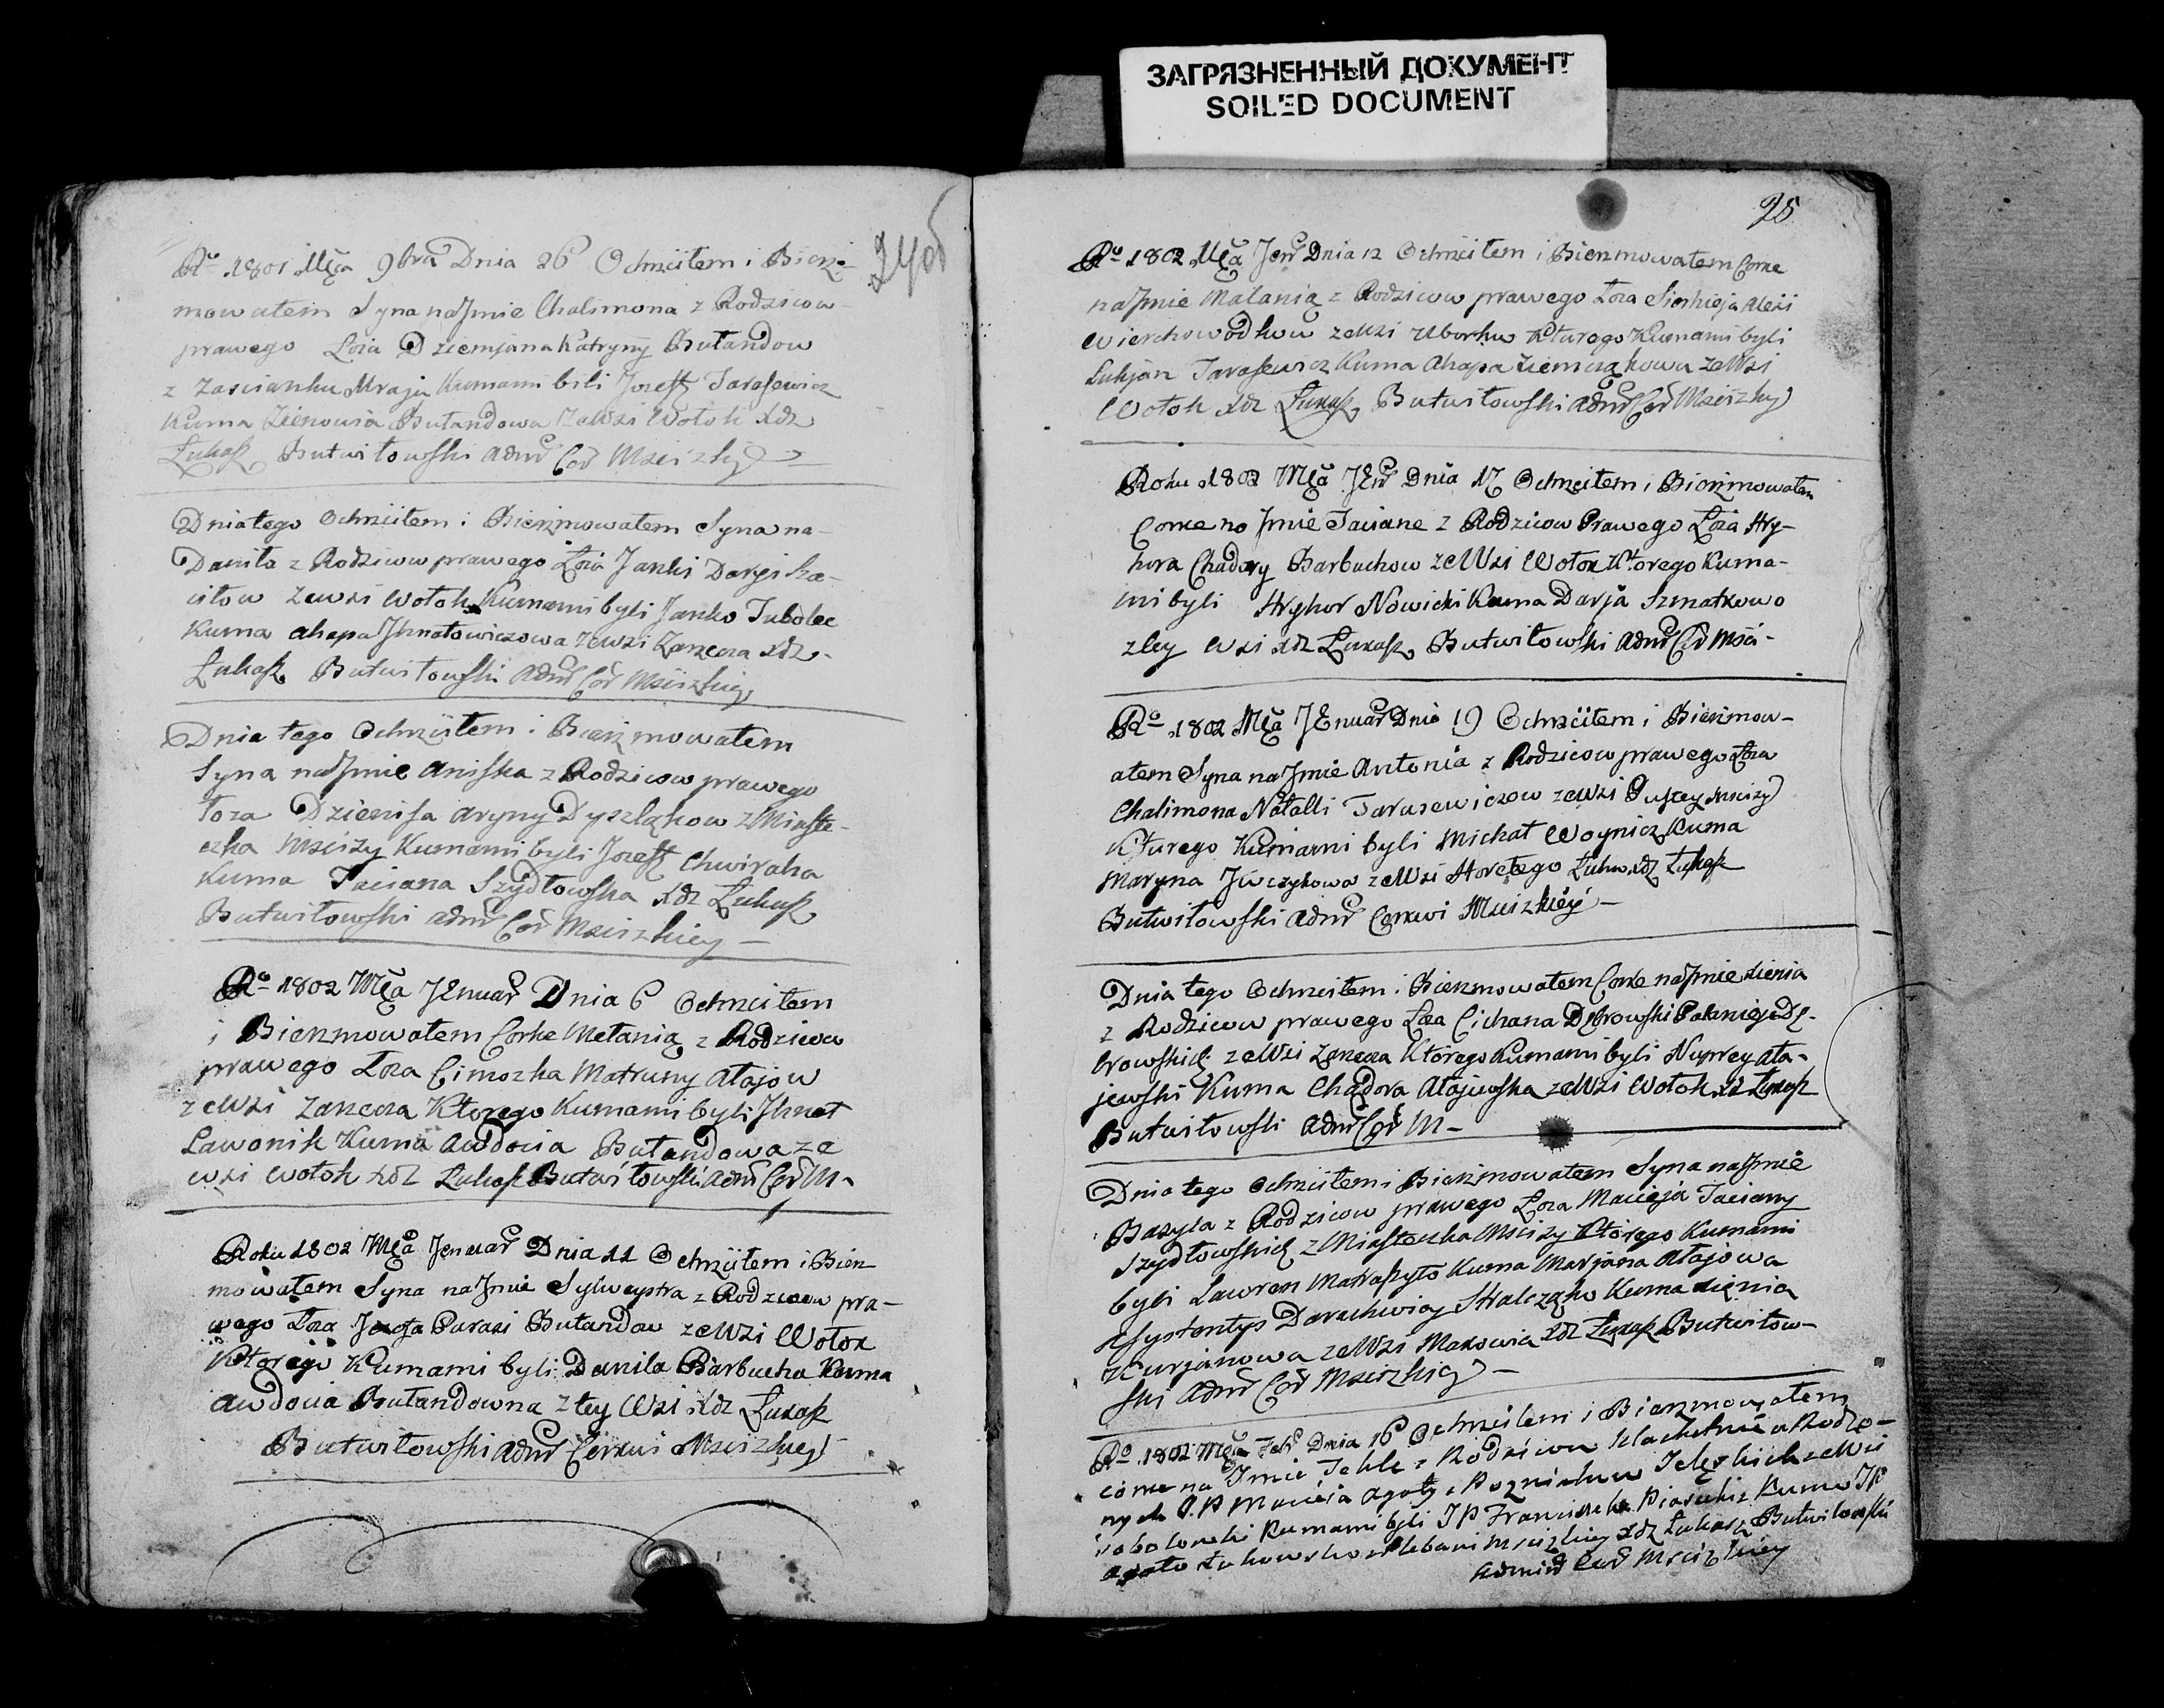 ЗАГРЯЗНЕННЫЙ ДОКУМЕНТ
SOILED DOCUMENT
24об
Ro 1801 Mca 9bra Dnia 26 Ochrzciłem i Bierz-
mowałem Syna na Jmie Chalimona z Rodzicow
prawego Łoża Dziemjana Katryny Bułandow
z Zascianku Mraju Kumami bili Jozeff Tarasewicz
Kuma Zienowia Bułandowa ze Wsi Wołok Xdz
Łukasz Butwiłowski Admr Cer Mscizkiey
Dnia tego Ochrzciłem i Bierzmowałem Syna na
Daniła z Rodzicow prawego Łoża Janki Daryi
ze wsi Wołok Kumami byli Janko Tubolec
Kuma Ahapa Jhnatowiczowa ze Wsi Zarzecza Xdz
Łukasz Butwiłowski Admr Cer Mscizkiey
Dnia tego Ochrzciłem i Bierzmowałem
Syna na Jmie Aniska z Rodzicow prawego
Łoza Dzienisa Aryny Dyszląkow z Miaste-
czka Mscizy Kumami byli Jozeff Chwiraha
Kuma Taciana Szydłowska Xdz Łukasz
Butwiłowski Admr Cer Mscizkiey
Ro 1802 Mca JEnuar Dnia 6 Ochrzciłem
i Bierzmowałem Corke Melanią z Rodzicow
prawego Łoza Cimozka Matruny Ałajow
ze Wsi Zarzecza Ktorego Kumami byli Jhnat
Lawonik Kuma Audocia Bułandowa ze
wsi Wołok Xdz Łukasz Butwiłowski Admr Cer M-
Roku 1802 Mca Jenuar Dnia 11 Ochrzciłem i Bierz
mowałem Syna na Jmie Sylweystra z Rodzicow pra-
wego Łoza Parasi Bułandow ze Wsi Wołok
Ktorego Kumami byli Daniła Barbucha Kuma
Awdocia Bułandowna z tey Wsi Xdz Łukasz
Butwiłowski Admr Cerkwi Mscizkiey
25
Ro 1802 Mca Jenr Dnia 12 Ochrzciłem i Bierzmowałem Corke
na Jmie Malanią z Rodzicow prawego Łoza Sierhieja
Wierchowodkow ze Wsi Uborku Kturego Kumami byli
Lukjan Tarasewicz Kuma Ahapa Ziemcząkowa ze Wsi
Wołok Xdz Łukasz Butwiłowski Admr Cer Mscizkiey
Roku 1802 Mca JEnr Dnia 17 Ochrzciłem i Bierzmowałem
Corke na Jmie Taciane z Rodzicow Prawego Łoża Hry-
hora Chadory Barbuchow ze Wsi Wołok Ktorego Kuma-
mi byli Hryhor Nowicki Kuma Darja Szmatkowo
z tey Wsi Xdz Łukasz Butwiłowski Admr Cer Mści-
Ro 1802 Mca JEnuar Dnia 19 Ochrzciłem i Bierzmow-
ałem Syna na Jmie Antonia z Rodzicow prawego Łoza
Chalimona Natalli Tarasewiczow ze Wsi Pustey Mscizy
Kturego Kumami byli Michał Woynicz Kuma
Maryna ze Wsi Horełego Łuhu Xdz Łukasz
Butwiłowski Admr Cerkwi Mscizkiey
Dnia tego Ochrzciłem i Bierzmowałem Corke na Jmie Xienia
z Rodzicow prawego Łoza Cichana Dąbrowski Pałanieji Dą-
browskich ze Wsi Zarzecza Ktorego Kumami byli Nuprey Ała-
jewski Kuma Chadora Ałajewska ze Wsi Wołok Xdz Łukasz
Butwiłowski Admr Cer M-
Dnia tego Ochrzciłem i Bierzmowałem Syna na Jmie
Bazyla z Rodzicow prawego Łoza Macieja Taciany
Szydłowskich z Miasteczka Mscizy Ktorego Kumami
byli Lawren Matraszyło Kuma Marjana Ałajowa
Assystentys Strałcząk Kuma Xięnia
Kurjanowa ze Wsi Makowia Xdz Łukasz Butwiłow-
ski Admr Cer Mscizkiey
Ro 1802 Mca Febr Dnia 16 Ochrzciłem i Bierzmowałem
corke na Jmie Tekle z Rodzicow Szlachetnie Urodzo-
nych J.P Macieja Agaty z Jeleskich ze Wsi
Kumami byli J P Franciszek Kuma JP
Agata Łukowska Plebani Mscizkiey Xdz Łukasz Butwiłowski
Admr Cer Mscizkiey